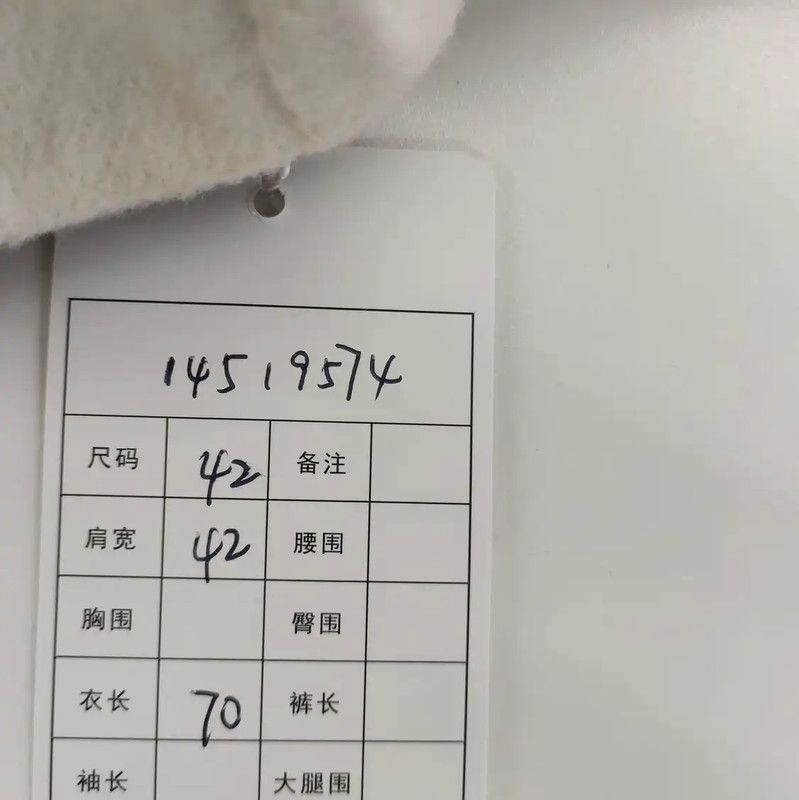 14519574
尺码 42 备注
肩宽 42 腰围
胸围 臀围
衣长 70 裤长
袖长 大腿围